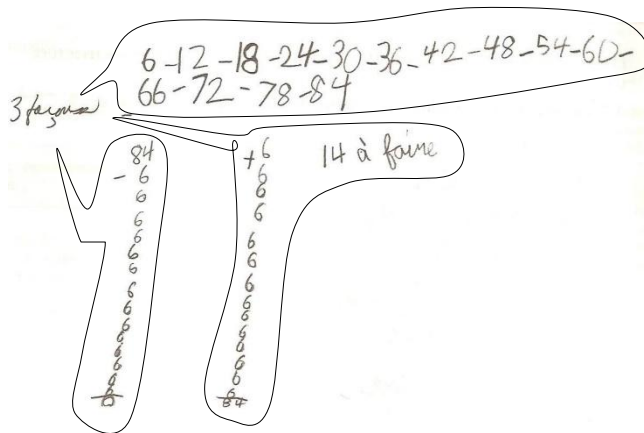 6-12-18-24-30-36-42-48-54-60-
66-72-78-84
3 façons
84
- 6
6
6
6
6
6
6
6
6
6
6
6
6
6
0
+ 6
6
6
6
6
6
6
6
6
6
6
6
6
6
84
14 à faire